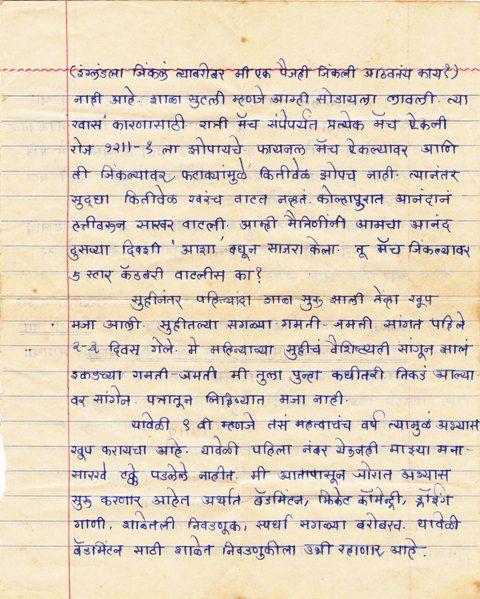 (इंग्लंडला जिंकलं त्याबरोबर मी एक पैजही जिंकली आठवतंय काय?)
नाही आहे. शाळा सुटली म्हणजे आम्ही सोडायला लावली. त्या
'खास' कारणासाठी. रात्री मॅच संपेपर्यंत प्रत्येक मॅच ऐकली
रोज १२॥-१ ला झोपायचे. फायनल मॅच ऐकल्यावर आणि
ती जिंकल्यावर फटाक्यांमुळे कितीवेळ झोपच नाही. त्यानंतर
सुद्धा कितीवेळ खरंच वाटत नव्हतं. कोल्हापुरात आनंदानं
हत्तीवरून साखर वाटली. आम्ही मैत्रिणींनी आमचा आनंद
दुसऱ्या दिवशी 'आशा' बघून साजरा केला. तू मॅच जिंकल्यावर
५ स्टार कॅडबरी वाटलीस का?
सुट्टीनंतर पहिल्यांदा शाळा सुरू झाली तेंव्हा खूप
मजा आली. सुट्टीतल्या सगळ्या गमती-जमती सांगत पहिले
२-३ दिवस गेले. मे महिन्याच्या सुट्टीचं वैशिष्ट्यही सांगून झालं
इकडच्या गमती-जमती मी तुला पुन्हा कधीतरी तिकडं आल्या-
वर सांगेन. पत्रातून लिहिण्यात मजा नाही.
यावेळी ९ वी म्हणजे तसं महत्वाचंच वर्ष त्यामुळं अभ्यास
खूप करायचा आहे. यावेळी पहिला नंबर येऊनही माझ्या मना-
सारखे टक्के पडलेले नाहीत. मी आतापासून जोरात अभ्यास
सुरू करणार आहेत अर्थात बॅडमिंटन, क्रिकेट कॉमेन्ट्री, ड्रॉईंग
गाणी, शाळेतली निवडणूक, स्पर्धा सगळ्या बरोबरच. यावेळी
बॅडमिंटन साठी शाळेत निवडणुकीला उभी रहाणार आहे.